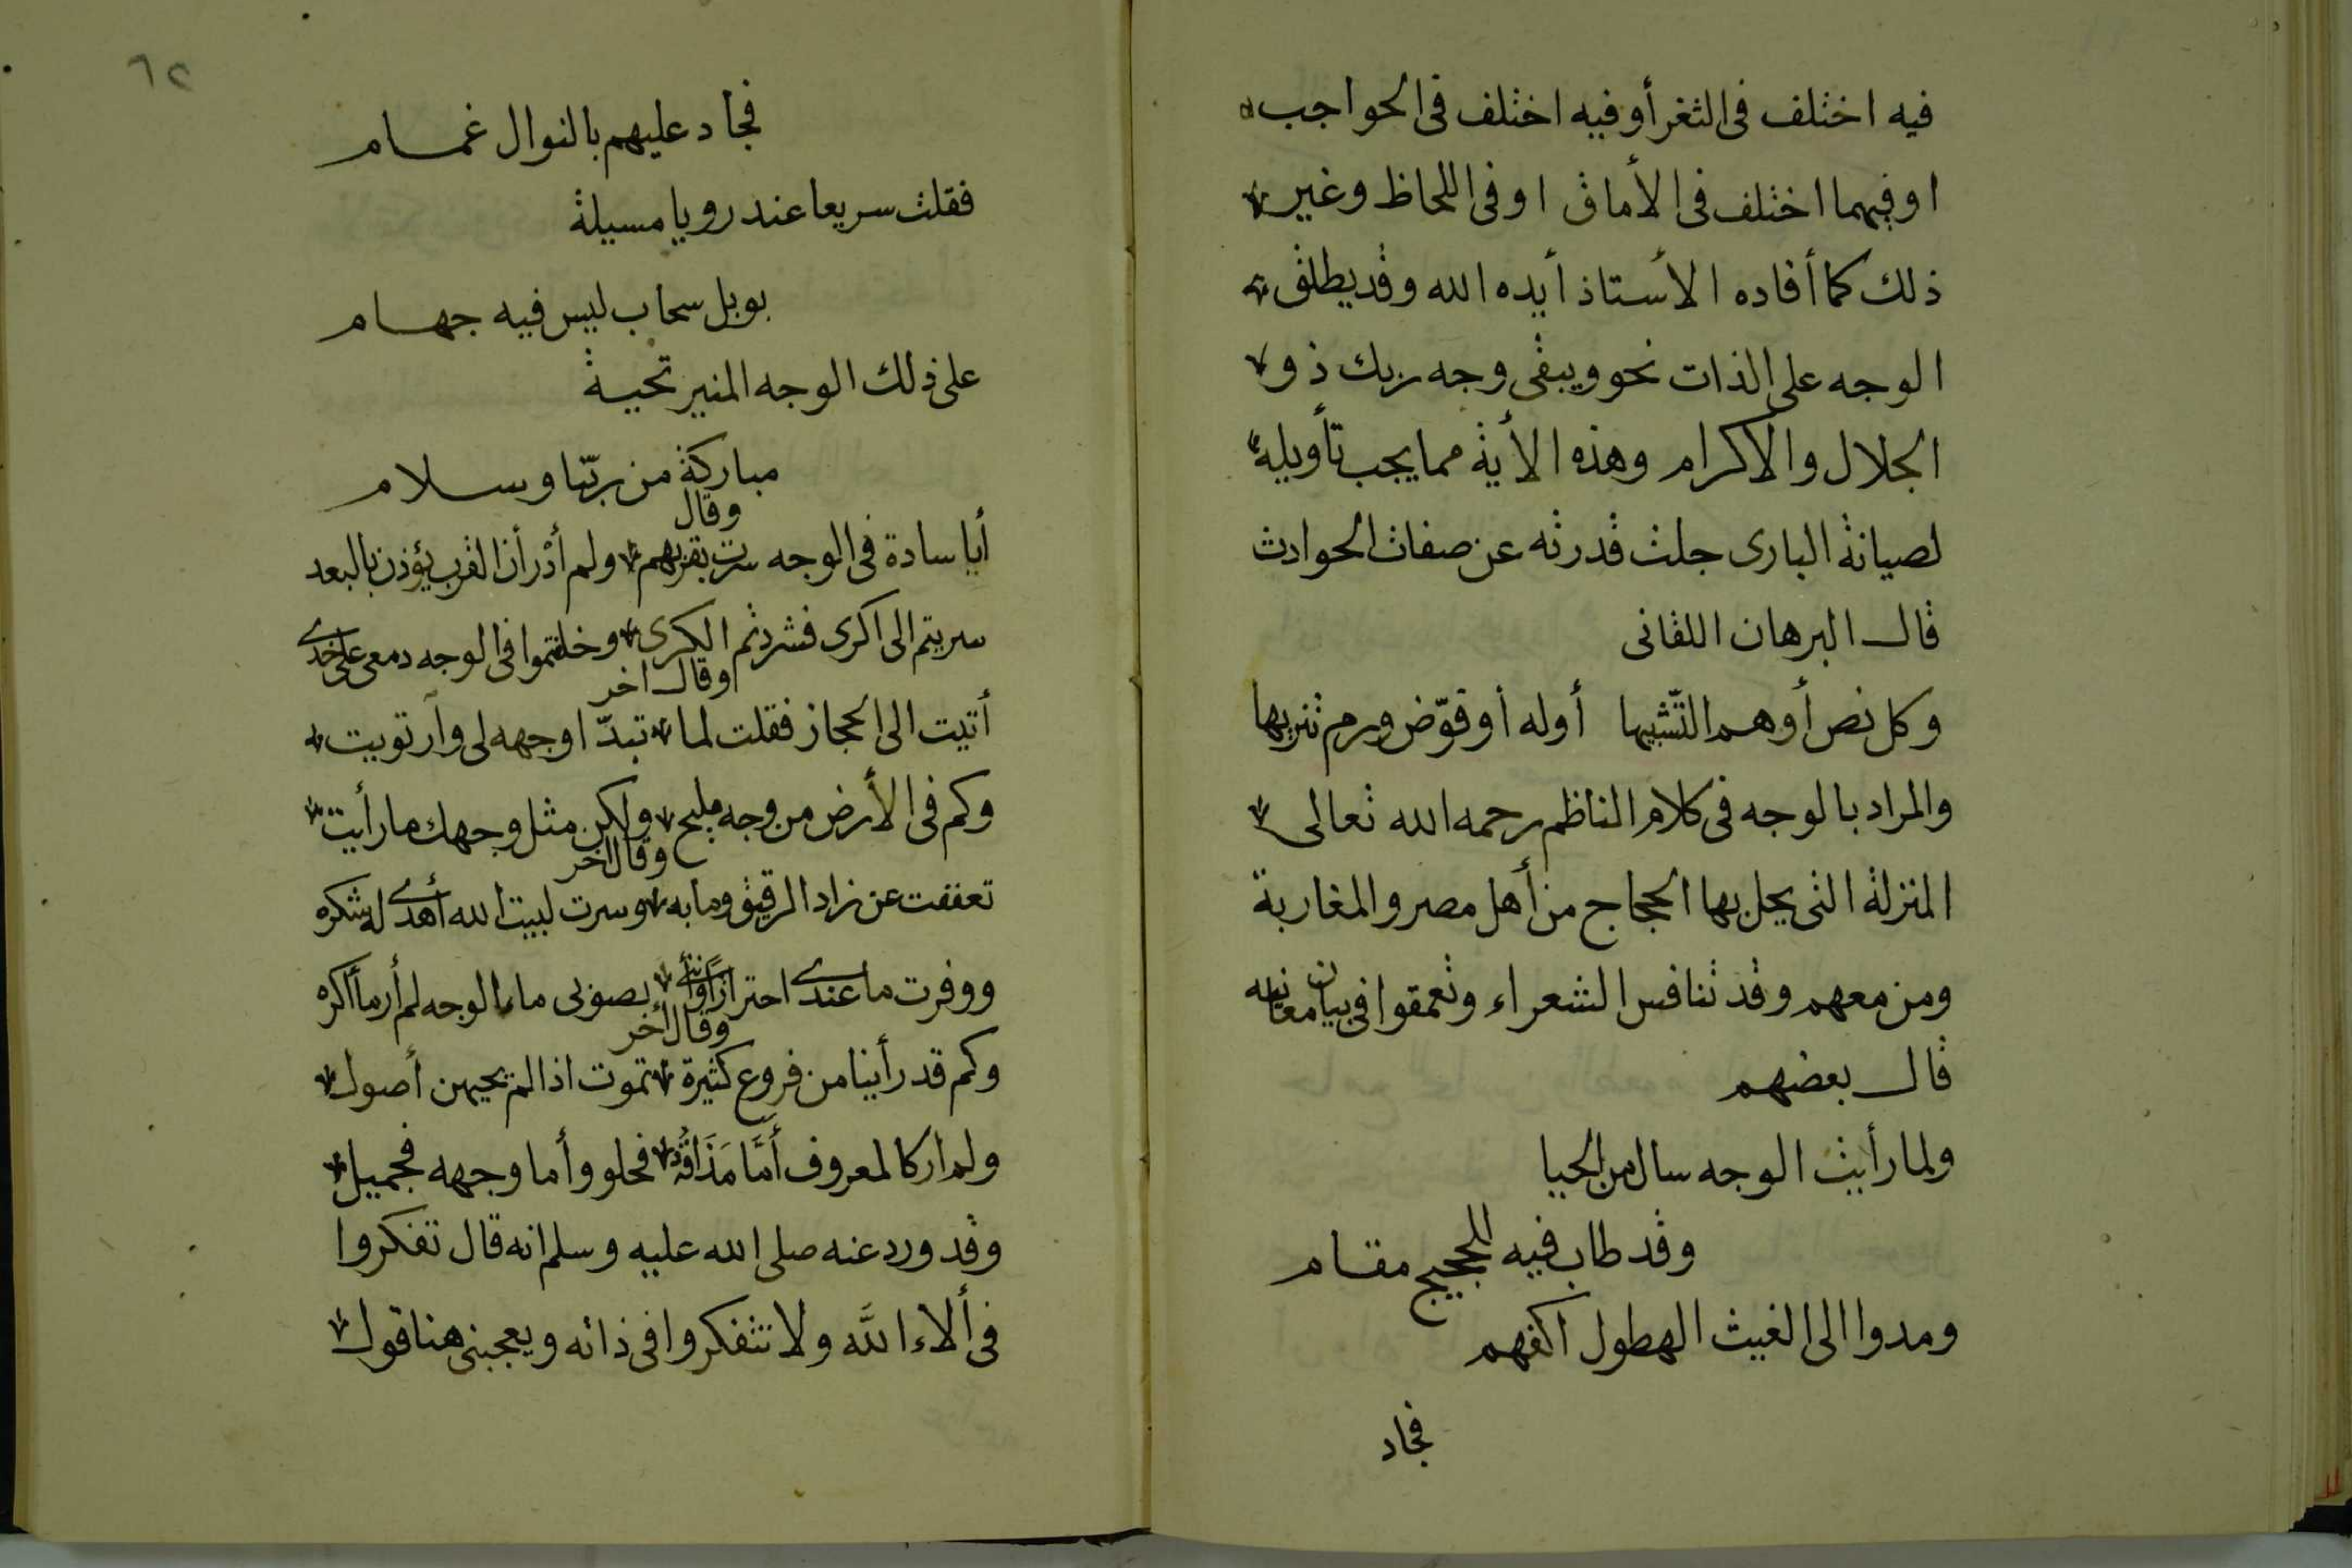 فيه اختلف فى الثغر أو فيه اختلف فى الحواجب
او فيهما اختلف فى الأماق او فى اللحاظ وغير
ذلك كما أفاده الأستاذ أيده الله وقد يطلق
الوجه على الذات نحو ويبقى وجه ربك ذو
الجلال والاكرام وهذه الأية مما يجب تأويله
لصيانة البارى جلت قدرته عن صفات الحوادث
قال البرهان اللقانى
وكل نص أوهم التّشبيها أوله أو فوّض ورم تنزيها
والمراد بالوجه فى كلام الناظم رحمه الله تعالى
المنزلة التى يحل بها الحجاج من أهل مصر والمغاربة
ومن معهم وقد تنافس الشعراء وتعمقوا فى بيان معانيه
قال بعضهم
ولما رأيت الوجه سال من الحيا
وقد طاب فيه للحجيج مقام
ومدوا الى الغيث الهطول اكفهم
فجاد
٦٢
فجاد عليهم بالنوال غمام
فقلت سريعا عند رويا مسيلة
بوبل سحاب ليس فيه جهام
على ذلك الوجه المنير تحية
مباركة من ربّنا وسلام
وقال
أيا سادة فى الوجه سرت بقربهم ولم أدْر أن القرب يؤذن بالبعد
سريتم الى اكرى فشردتم الكرى وخلفتموا فى الوجه دمعى على خدى
وقال اخر
أتيت الى الحجاز فقلت لما تبدّا وجهه لى وارتويت
وكم فى الأرض من وجه مليح ولكن مثل وجهك ما رأيت
وقال اخر
تعففت عن زاد الرقيق وما به وسرت لبيت الله أهدى له شكره
ووفرت ما عندى احترازًا وأننى بصونى ماء الوجه لم أر ما أكره
وقال أخر
وكم قد رأينا من فروع كثيرة تموت اذا لم تحيهن أصول
ولم ار كالمعروف أمَّا مَذَاقُهُ فحلو وأما وجهه فجميل
وقد ورد عنه صلى الله عليه وسلم انه قال تفكروا
فى ألاء اللَّه ولا تتفكروا فى ذاته ويعجبنى هنا قول